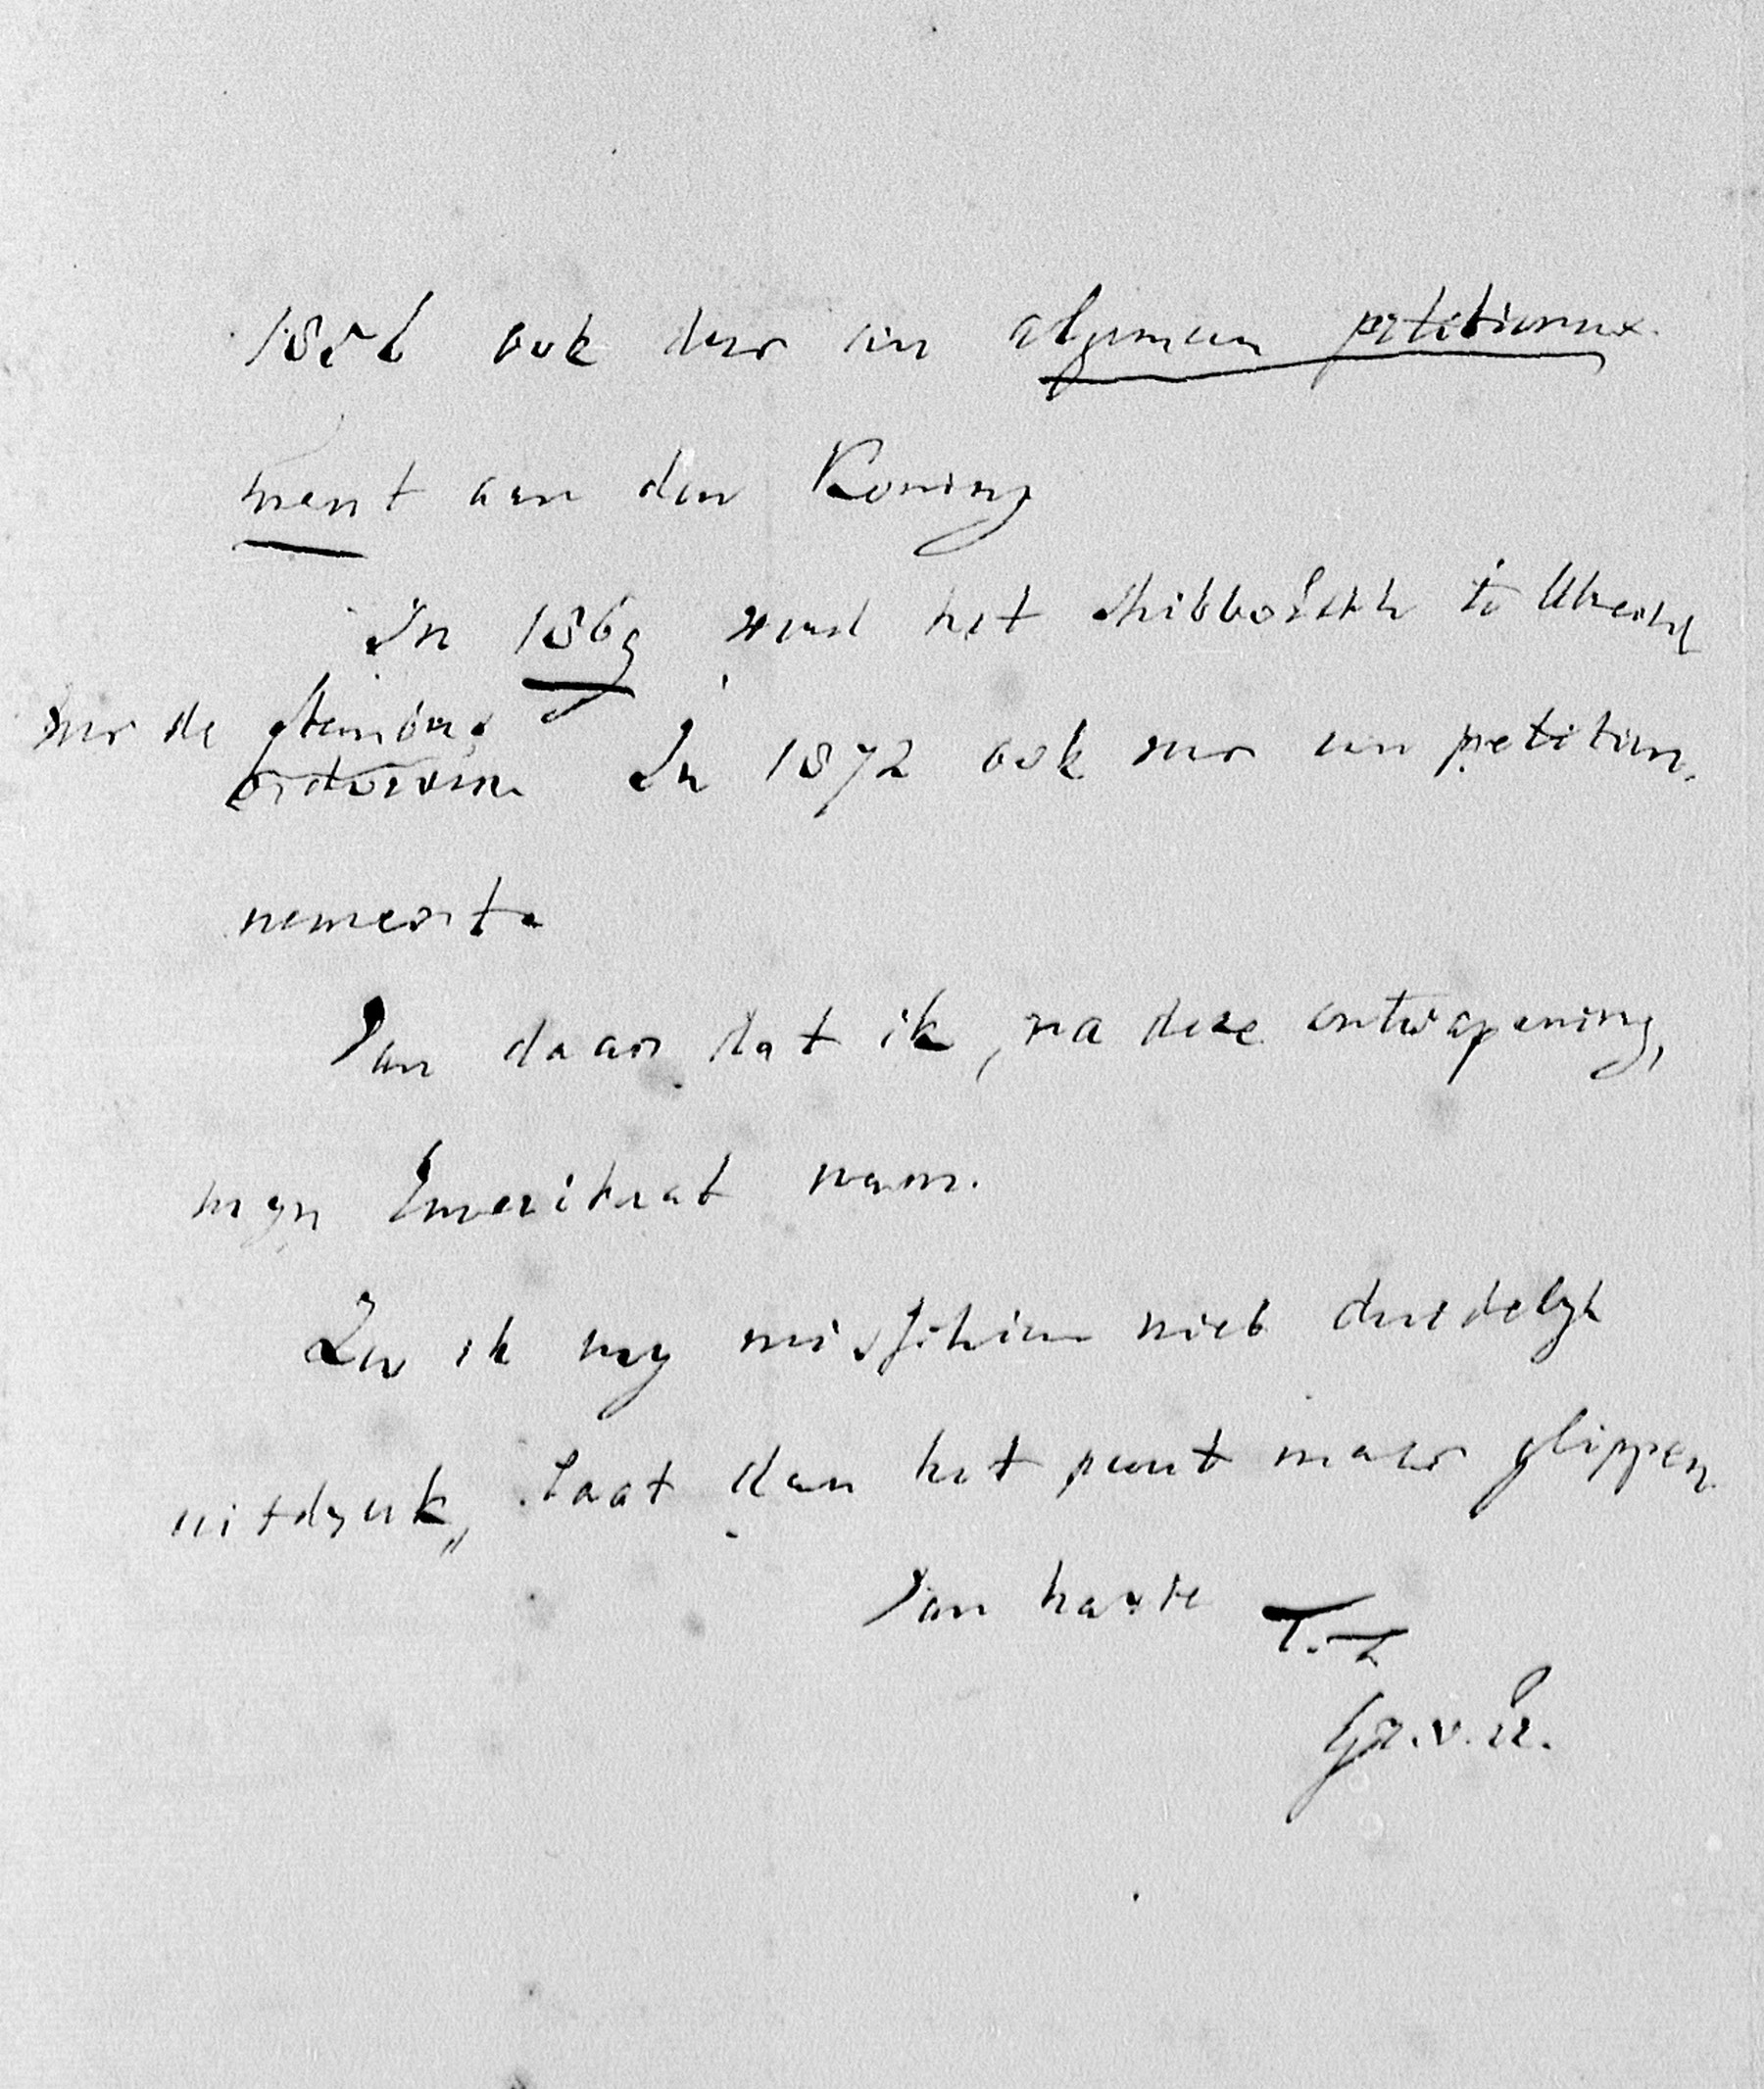 1856 ook door een algemeen petitionne-
ment aan den Koning
In 1869 werd het shibboleth te Utrecht
voor de stembus
In 1872 ook voor een petition-
nement.
Van daar dat ik, na deze ontwapening,
myn Emeritaat nam.
Zoo ik my misschien niet duidelyk
uitdruk, laat dan het punt maar glippen.
Van harte T.t.
Gr. v. Pr.